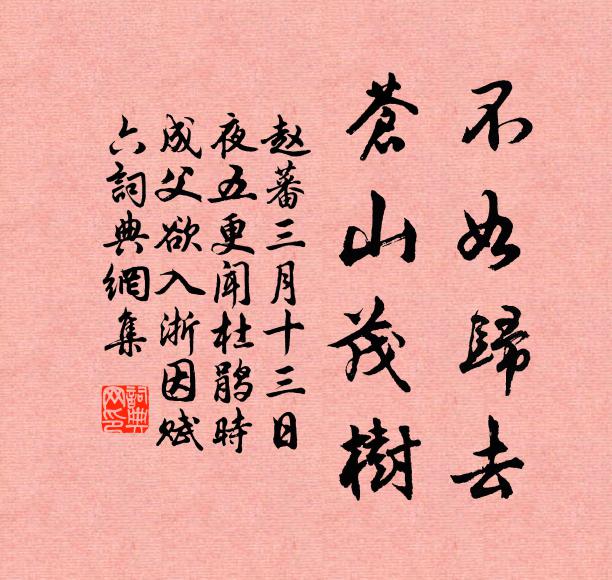 不如歸去
蒼山茂樹
赵蕃三月十三日
夜五更闻杜鹃時
成父欲入浙因赋
六詞典網集
詞典
网印